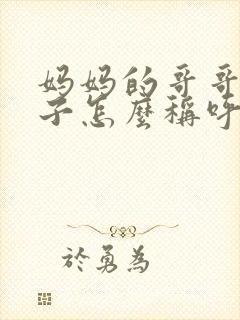 妈妈的哥哥
子怎麼稱呼
於勇為